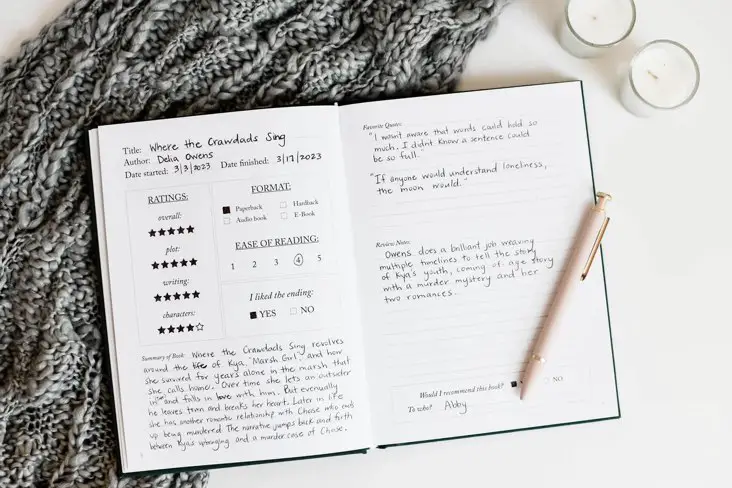 Title: Where the Crawdads Sing
Author: Delia Owens
Date started: 3/3/2023 Date finished: 3/17/2023
RATINGS:
overall:
plot:
writing:
characters:
FORMAT:
Paperback Hardback
Audio book E-Book
EASE OF READING:
1 2 3 4 5
I liked the ending:
YES NO
Summary of Book: Where the Crawdads Sing revolves
around the life of Kya "Marsh Girl" and how
she survived for years alone in the marsh that
she calls home. Over time she lets an outsider
in and falls in love with him. But eventually
he leaves town and breaks her heart. Later in life
she has another romantic relationship with Chase who ends
up being murdered. The narrative jumps back and forth
between Kya's upbringing and a murder case of Chase.
Favorite Quotes:
"I wasn't aware that words could hold so
much. I didn't know a sentence could
be so full."
"If anyone would understand loneliness,
the moon would."
Review Notes:
Owens does a brilliant job weaving
multiple timelines to tell the story
of Kya's youth, coming of age story
with a murder mystery and her
two romances.
Would I recommend this book? NO
To who? Abby